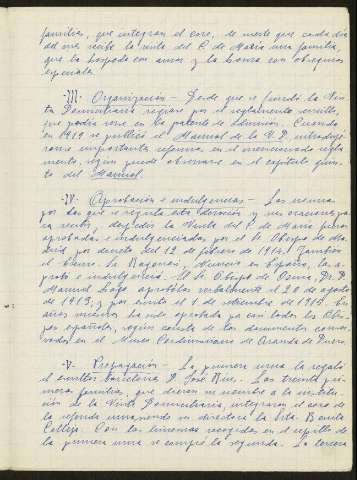 familias, que integran el coro, de suerte que cada día
del mes recibe la visita del C. de María una familia,
que la hospeda con amor y la honra con obsequios
especiales.
-III- Organización - Desde que se fundó la Visi-
ta Domiciliaria, regíase por el reglamento sencillo,
que podía verse en la patente de admisión. Cuando
en 1919 se publicó el Manual de la V. D. introdujé-
ronse importantes reformas en el mencionado regla-
mento, según puede observarse en el capítulo quin-
to del Manual.
-IV- Aprobación e indulgencias - Las mismas
por las que se regula esta devoción y sus oraciones para
recibir, despedir la Visita del C. de María fueron
aprobadas e indulgenciadas por el Sr. Obispo de Ma-
drid por decreto del 12 de febrero de 1914. También
el Excmo. Sr. Ragonesi, Nuncio en España, las a-
probó e indulgenció. El Sr. Obispo de Osma, Dr. D.
Manuel Lago aprobólas verbalmente el 20 de agosto
de 1913, y por escrito el 1 de noviembre de 1915. En
años mismos ha sido aprobada ya con todos los Obis-
pos españoles, según consta de los documentos conser-
vados en el Museo Cordimariano de Aranda de Duero.
-V- Propagación - La primera urna la regaló
el escultor barcelonés D. José Rius. Las treinta pri-
meras familias, que dieron su nombre a la institu-
ción de la Visita Domiciliaria, integraron el coro de
la referida urna, siendo su directora la Srta. Benita
Calleja. Con las limosnas recogidas en el cepillo de
la primera urna se compró la segunda. La tercera